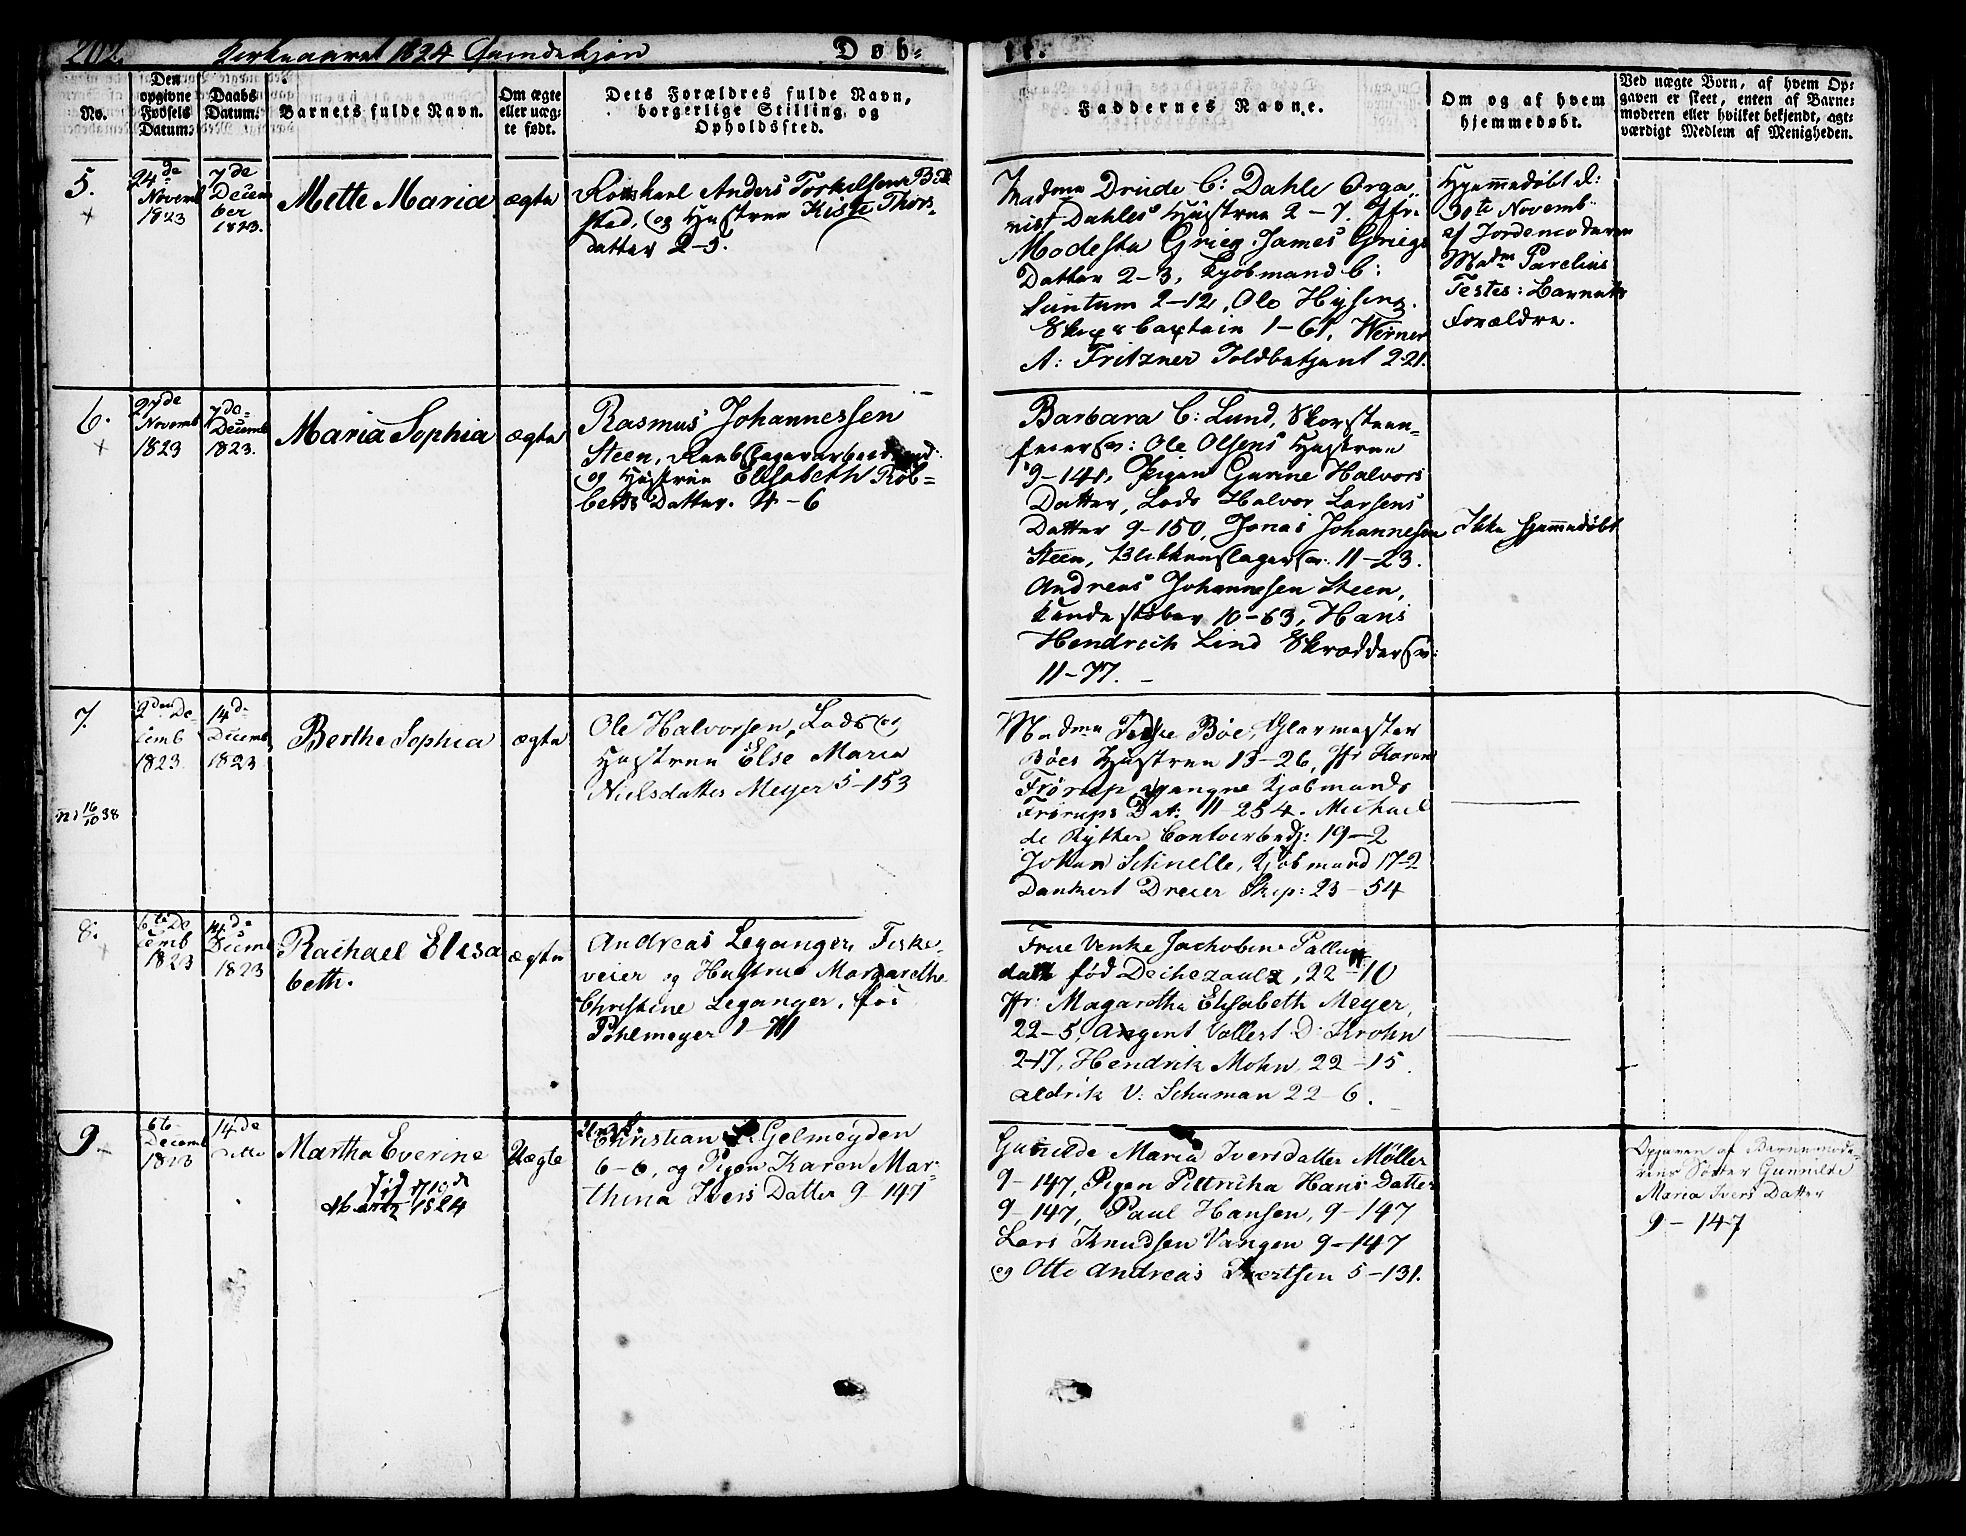 202. Kirkeaaret 1824 Qvindekjøn Døb-
te.
No.
Den
opgivne
Fødsels
Datum.
Daabs
Datum.
Barnets fulde Navn.
Om ægte
eller uæg-
te født.
Dets Forældres fulde Navn,
borgerlige Stilling og
Opholdsfted.
Faddernes Navne.
Om og af hvem
hjemmedøbt.
Ved uægte Børn, af hvem Op-
gaven er skeet, enten af Barne-
moderen eller hvilket bekjendt, agt-
værdigt Medlem af Menigheden.
5.
24de
Novemb
1823
7de
Decem
ber
1823.
Mette Maria
ægte
Anders Torkelsen
stad, og Hustrue Thors-
datter 2-3.
Madme Drude C: Dahle Orga
nist Dahles Hustrue 2-7. Jfr.
Modesta Grieg James Griegs
Datter 2-3, Kjøbmand C:
Suntum 2-12, Ole Hysing
Skips Captain 1-61, Werner
A: Fritzner Toldbetjent 2-21.
Hjemmedøbt d:
30te Novemb:
af Jordemoderen
Madm Parelius
Testes: Barnets
Forældre.
6.
27de
Novemb
1823
7de
Decemb
1823.
Maria Sophia
ægte
Rasmus Johannessen
Steen, Reebslagerarbeidsmand
og Hustrue Elisabeth Rob=
berts Datter. 4-6
Barbara C: Lund, Skorsteen-
feiersv: Ole Olsens Hustrue
9-141, Pigen Gurine Halvors
Datter, Lods Halvor Larsens
Datter 9-150, Jonas Johannesen
Steen, Blikkenslagersv: 11-23.
Andreas Johannesen Steen,
Kandestøber 10-63, Hans
Hendrich Lind Skræddersv:
11-77.
Ikke hjemmedøbt
7.
2den De-
cemb
1823.
14de
Decemb
1823
Berthe Sophia
ægte
Ole Halvorsen, Lods og
Hustrue Else Maria
Nielsdatter Meyer 5-153
16/10 38
Madme Bøe, Glarmester
Bøes Hustrue 13-26, Jfr Karen
Frørup, Kjøbmands
Frørups Dat: 11-254. Michael
de Rytter Contoirbetj: 19-2
Johan Schnelle, Kjøbmand 17-2
Dankert Dreier Skip: 23-54
8.
6te De
cemb
1823
14de
Decemb
1823
Rachael Elisa
beth.
ægte
Andreas Leganger, Fiske-
veier og Hustrue Margarethe
Christine Leganger, fød
Pohlmeyer 1-71
Frue Venke Jachobine
født Deichezaulz, 22-10
Jfr: Magaretha Elisabeth Meyer,
22-5, Agent Vollert D: Krohn
2-17, Hendrik Mohn 22-15.
Aldrik V: Schuman 22-6.
9.
6te
Decemb
1823
14de
ditto
Martha Everine
død 10de
Martz 1824
Uægte
Christian Gelmeyden
6-6, og Pigen Karen Mar-
thina Ivers Datter 9-147
Gunilde Maria Iversdatter Møller
9-147, Pigen Pittricha Hans Datter
9-147, Paul Hansen, 9-147
Lars Knudsen Vangen 9-147
og Otto Andreas Evertsen 5-131.
Opgiven af Barnemode-
rens Søster Gunnilde
Maria Ivers Datter
9-147